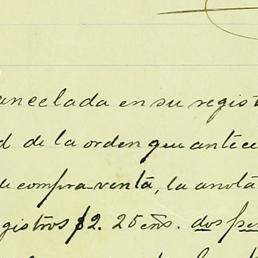 ancelada en su regist
d de la orden que antece
de compra-venta, la anota
gistros $2.25 cño. dos pes